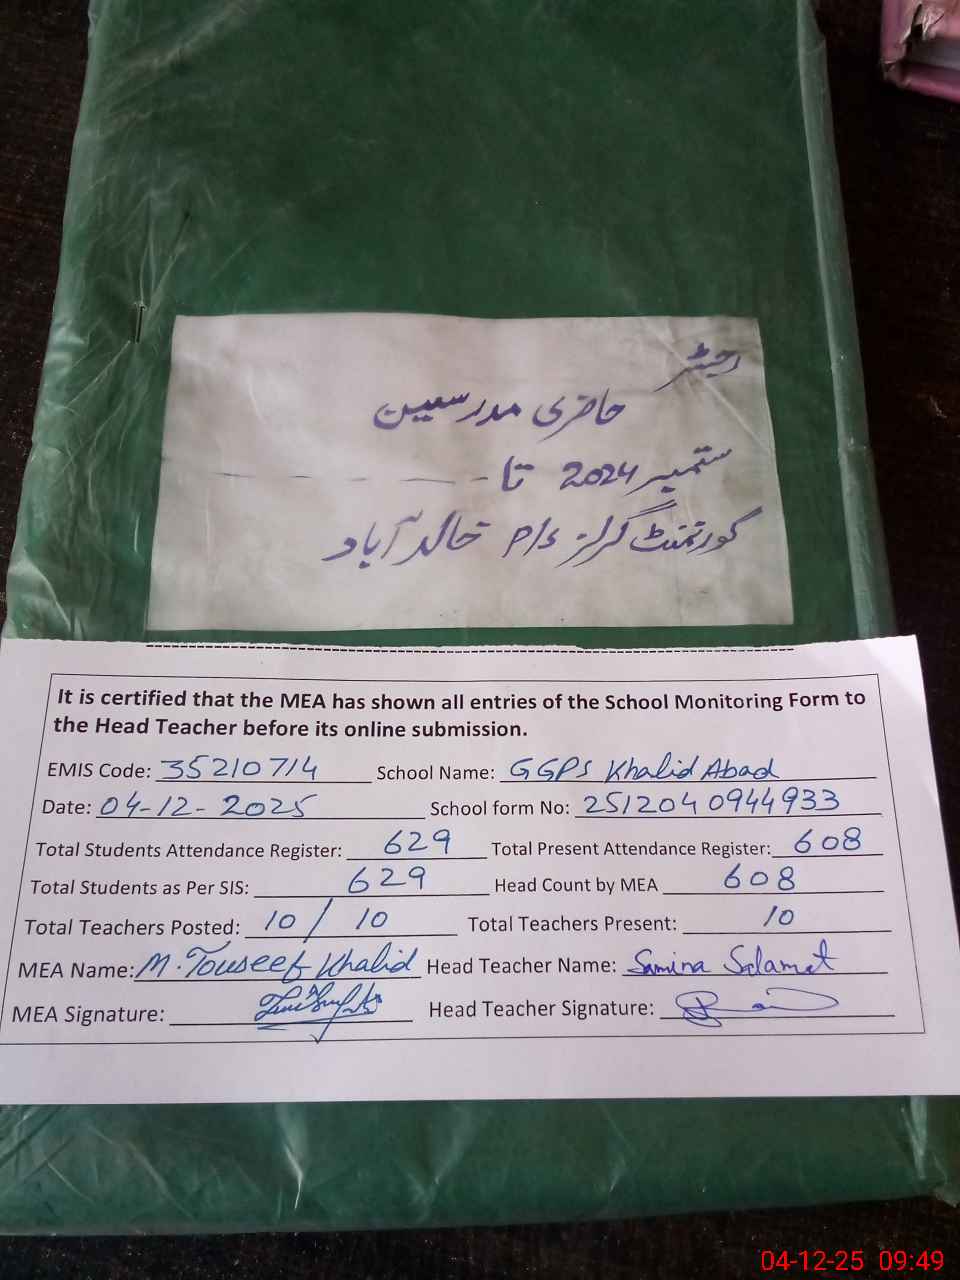 رجسٹر
حاضری مدرسین
ستمبر 2024 تا
گورنمنٹ گرلز P/S خالد آباد
It is certified that the MEA has shown all entries of the School Monitoring Form to
the Head Teacher before its online submission.
EMIS Code: 35210714 School Name: GGPS Khalid Abad
Date: 04-12-2025 School form No: 2512040944933
Total Students Attendance Register: 629 Total Present Attendance Register: 608
Total Students as Per SIS: 629 Head Count by MEA 608
Total Teachers Posted: 10 / 10 Total Teachers Present: 10
MEA Name: M. Touseef Khalid Head Teacher Name: Samina Salamat
MEA Signature: Head Teacher Signature:
04-12-25 09:49